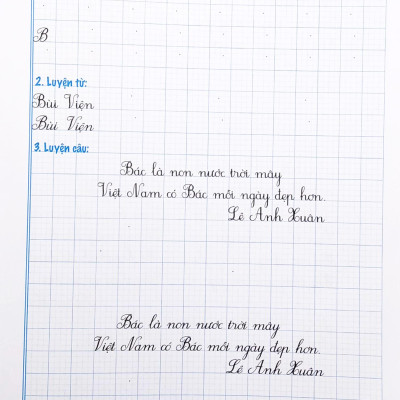 B
2. Luyện từ:
Bùi Viện
Bùi Viện
3. Luyện câu:
Bác là non nước trời mây
Việt Nam có Bác mỗi ngày đẹp hơn.
Lê Anh Xuân
Bác là non nước trời mây
Việt Nam có Bác mỗi ngày đẹp hơn.
Lê Anh Xuân